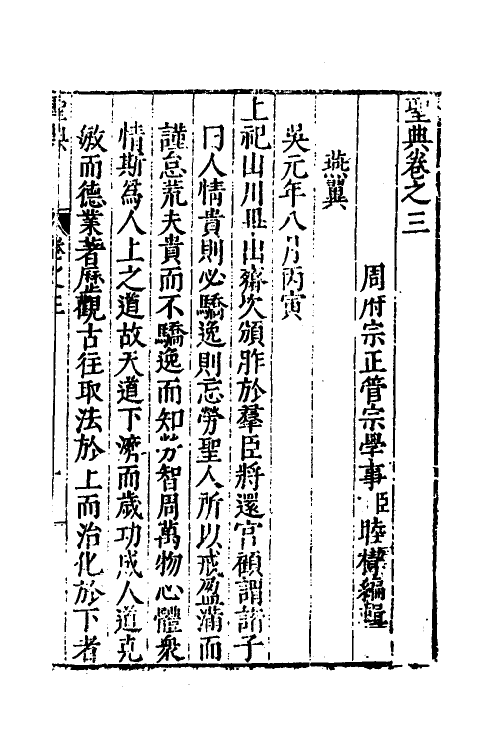 聖典卷之三
周府宗正管宗學事臣睦㮮編輯
燕翼
吳元年八月丙寅
上祀山川畢出齋次頒胙於羣臣將還宮顧謂諸子
曰人情貴則必驕逸則忘勞聖人所以戒盈滿而
謹怠荒夫貴而不驕逸而知勞智周萬物心體衆
情斯爲人上之道故天道下濟而歲功成人道克
敏而德業著歷觀古往取法於上而治化於下者
聖典
卷之三
一